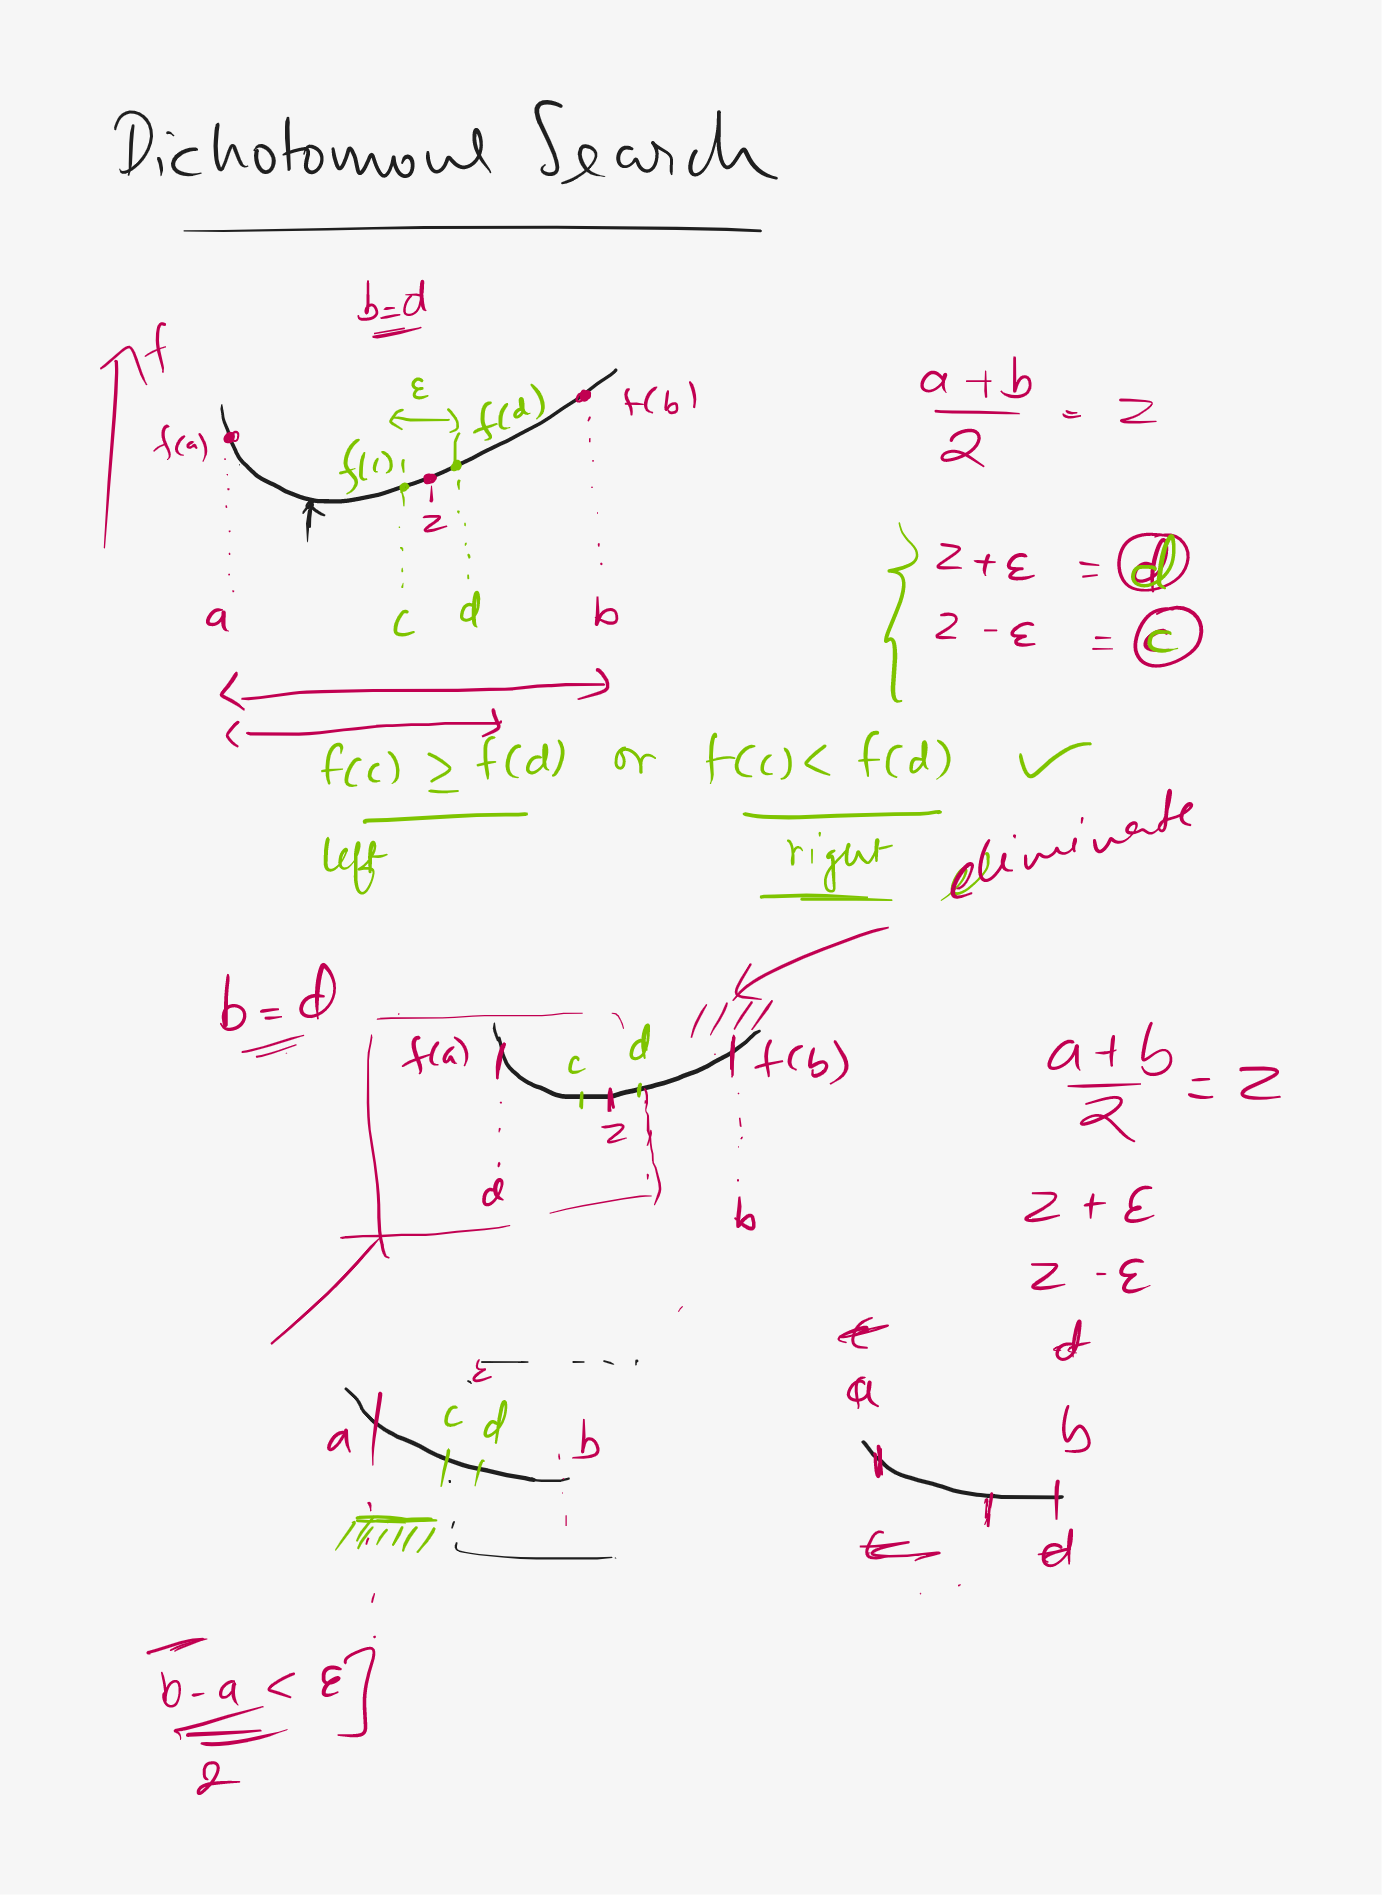 Dichotomous Search
b=d
f
ε
f(a)
f(c)
f(d)
f(b)
z
a
c
d
b
a+b
2
= z
z+ε = d
z-ε = c
f(c) ≥ f(d) or f(c) < f(d) ✓
left
right
eliminate
b=d
f(a)
c
d
f(b)
z
a
b
a+b
2
= z
z+ε
z-ε
d
a
b
d
ε
a
c
d
b
b-a < ε]
2